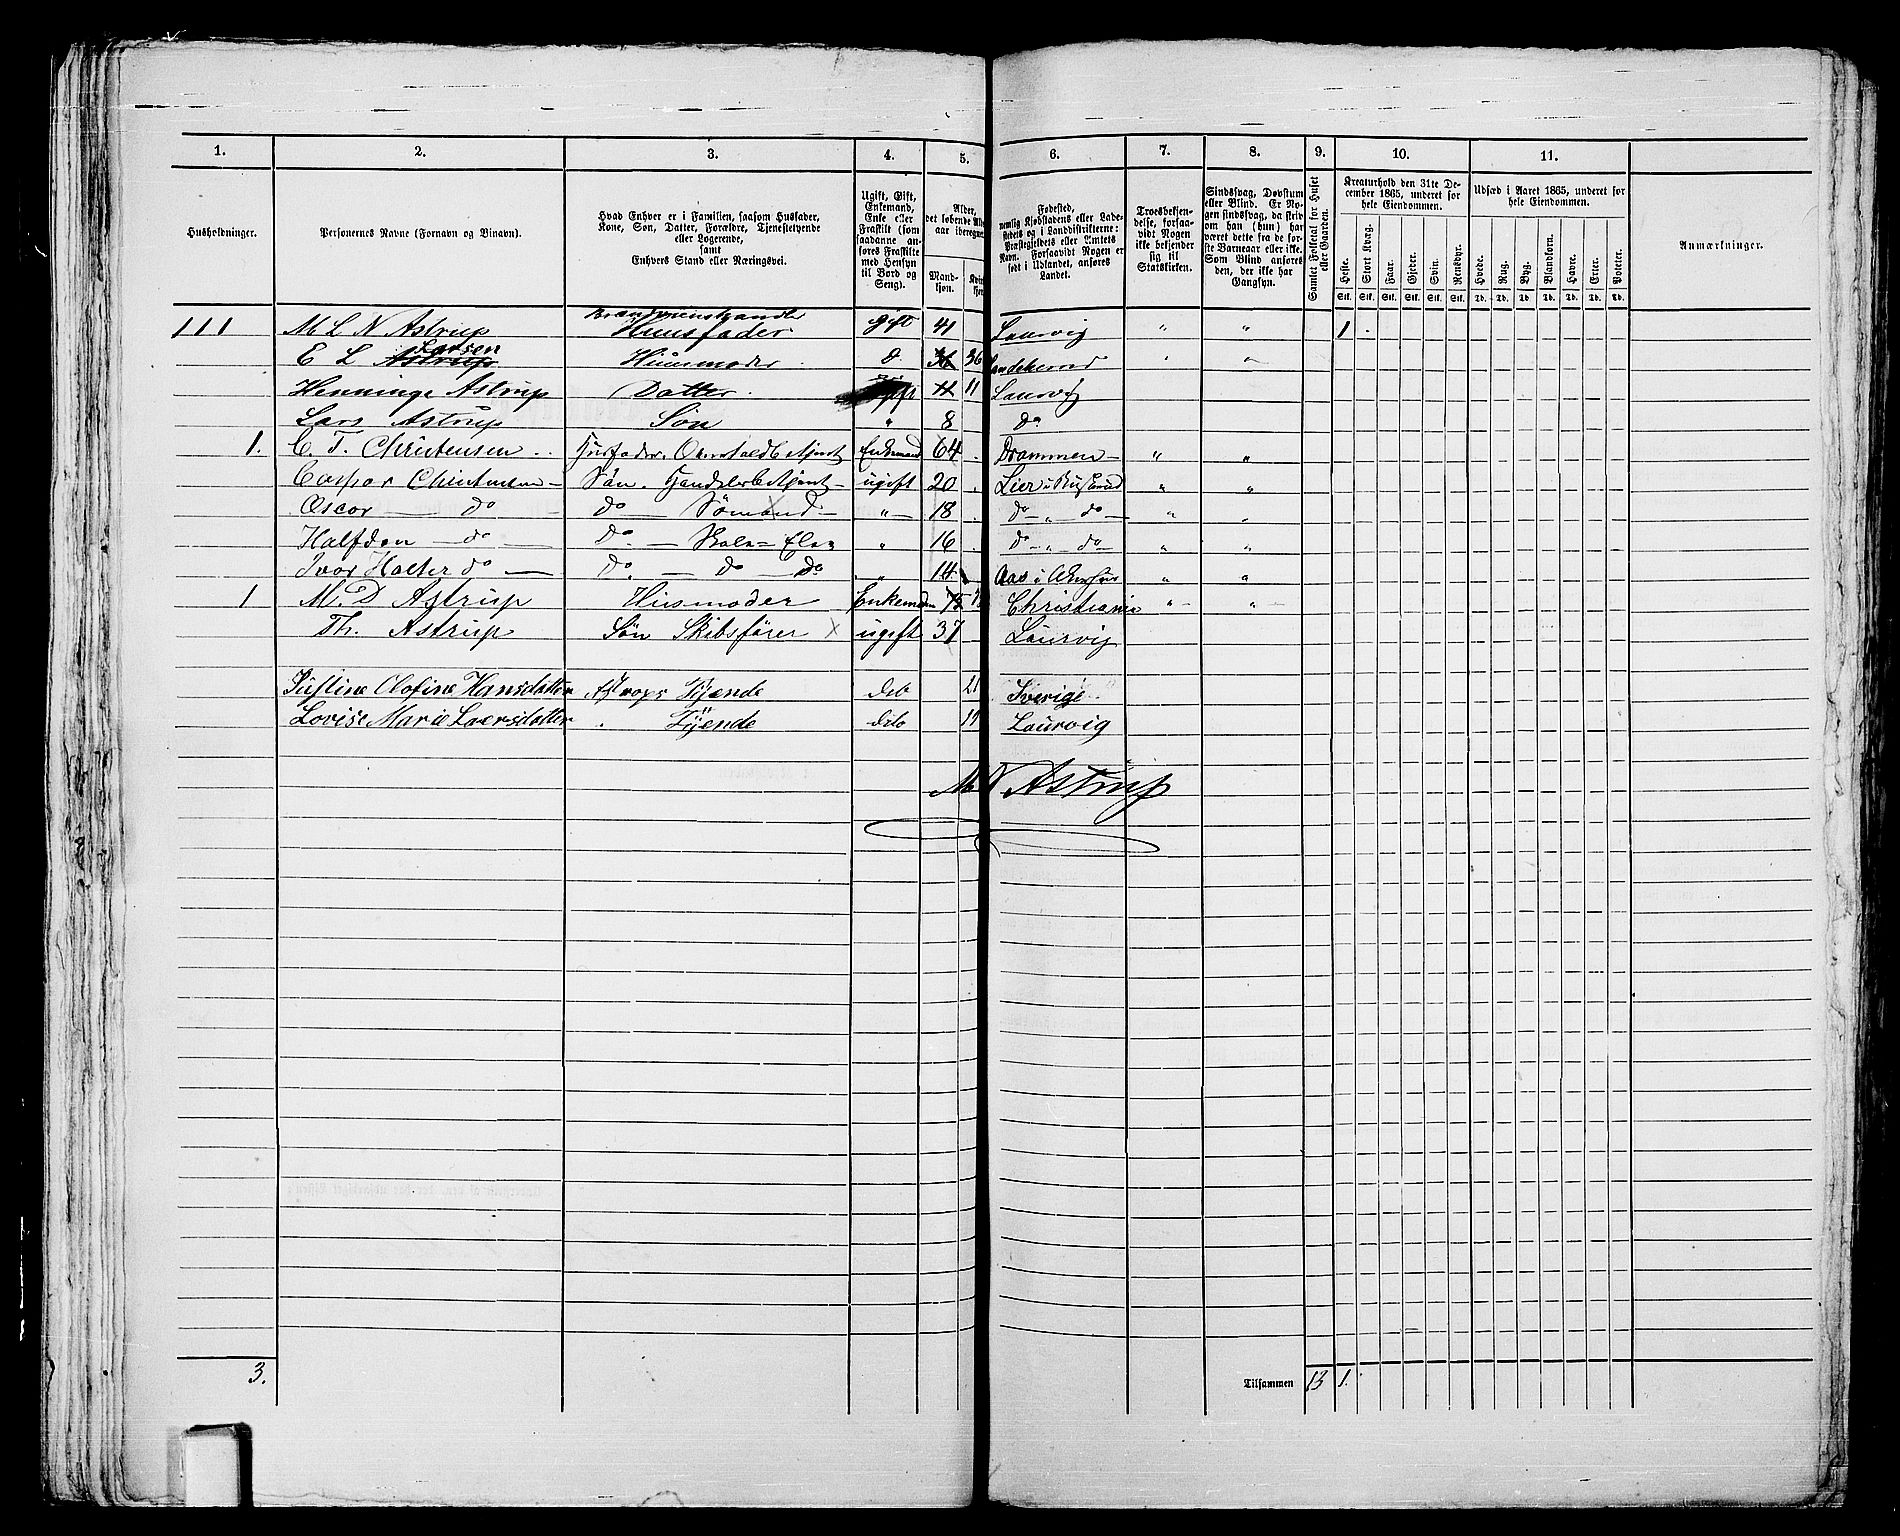 1. 2. 3. 4. 5. 6. 7. 8. 9. 10. 11.
Husholdninger.
Personernes Navne (Fornavn og Binavn).
Hvad Enhver er i Familien, saasom Husfader, Kone, Søn, Datter, Forældre, Tjenestetyende eller Logerende, samt Enhvers Stand eller Næringsvei.
Ugift, Gift, Enkemand, Enke eller Fraskilt (som saadanne anføres Fraskilte med Hensyn til Bord og Seng).
Alder, det løbende Alders­aar iberegnet
Mandkjøn.
Fødested, nemlig Kjøbstadens eller Ladestedets og i Landdistrikterne: Præstegjeldets eller Amtets Navn. Forsaavidt Nogen er født i Udlandet, anføres Landet.
Troesbekjendelse, forsaavidt Nogen ikke bekjender sig til Statskirken.
Sindssvag, Døvstum eller Blind. Er Nogen sindssvag, da skriv om han (hun) har været dette fra de første Barneaar eller ikke. Som Blind anføres den, der ikke har Gangsyn.
Samlet Folketal for Huset eller Gaarden.
Kreaturhold den 31te December 1865, underet for hele Eiendommen.
Heste. Stort Kvæg. Faar. Gjeder. Svin. Rensdyr.
Stk. Stk. Stk. Stk. Stk. Stk.
Udsæd i Aaret 1865, underet for hele Eiendommen.
Hvede. Rug. Byg. Blandkorn. Havre. Erter. Poteter.
Td. Td. Td. Td. Td. Td. Td.
Anmærkninger.
111 M L N Astrup Huusfader gift 41 Laurvig " " 1
E L Astrup Larsen Huusmoder d. 36 36 " "
Henninge Astrup Datter 11 11 Laurvig
Lars Astrup Søn " 8 do
1. C. T. Christensen Husfader. Enkemand 64 Drammen " "
Caspar Christensen Søn. ugift 20 Lier i Buskerud " "
Oscar do do Sømand " 18 do " do " "
Halfdan do do Skole-Elev " 16 do " do " "
Ivar Halter do do do do " 14 Aas i Akershus " "
1 M. D Astrup Husmoder 75 Christiania " "
Th. Astrup Søn Skibsfører x ugift 37 Laurvig
Justine Olofine Hansdatter Astrups Tjende dito 21 Sverige
Lovise Marie Laersdatter Tjende dito 19 Laurvig
M N Astrup
3. Tilsammen 13 1.